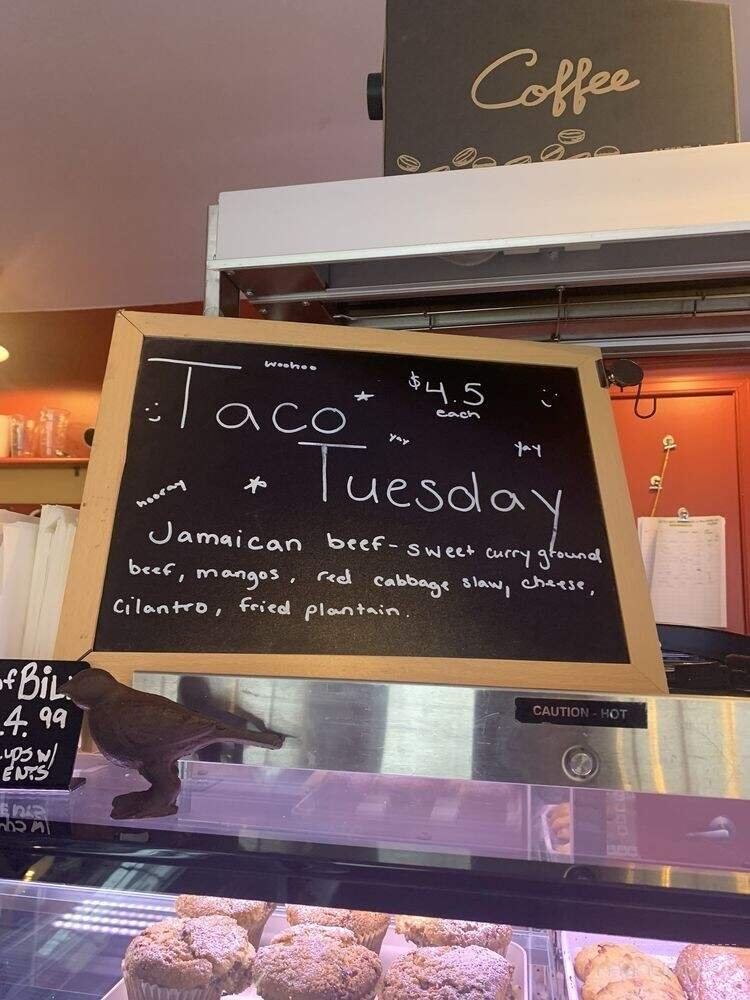 Coffee
woohoo
Taco
$4.5
each
yay
yay
hooray
Tuesday
Jamaican beef - sweet curry ground
beef, mangos, red cabbage slaw, cheese,
cilantro, fried plantain.
CAUTION - HOT
4.99
W/